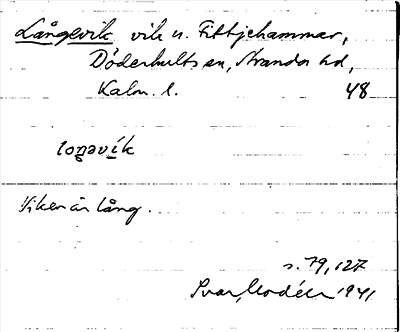 Långevik vik v. Fittjehammar,
Döderhults sn, Stranda hd,
Kalm. l. 48
loŋəvík
Viken är lång.
s. 79, 127
Ivar Modéer 1941